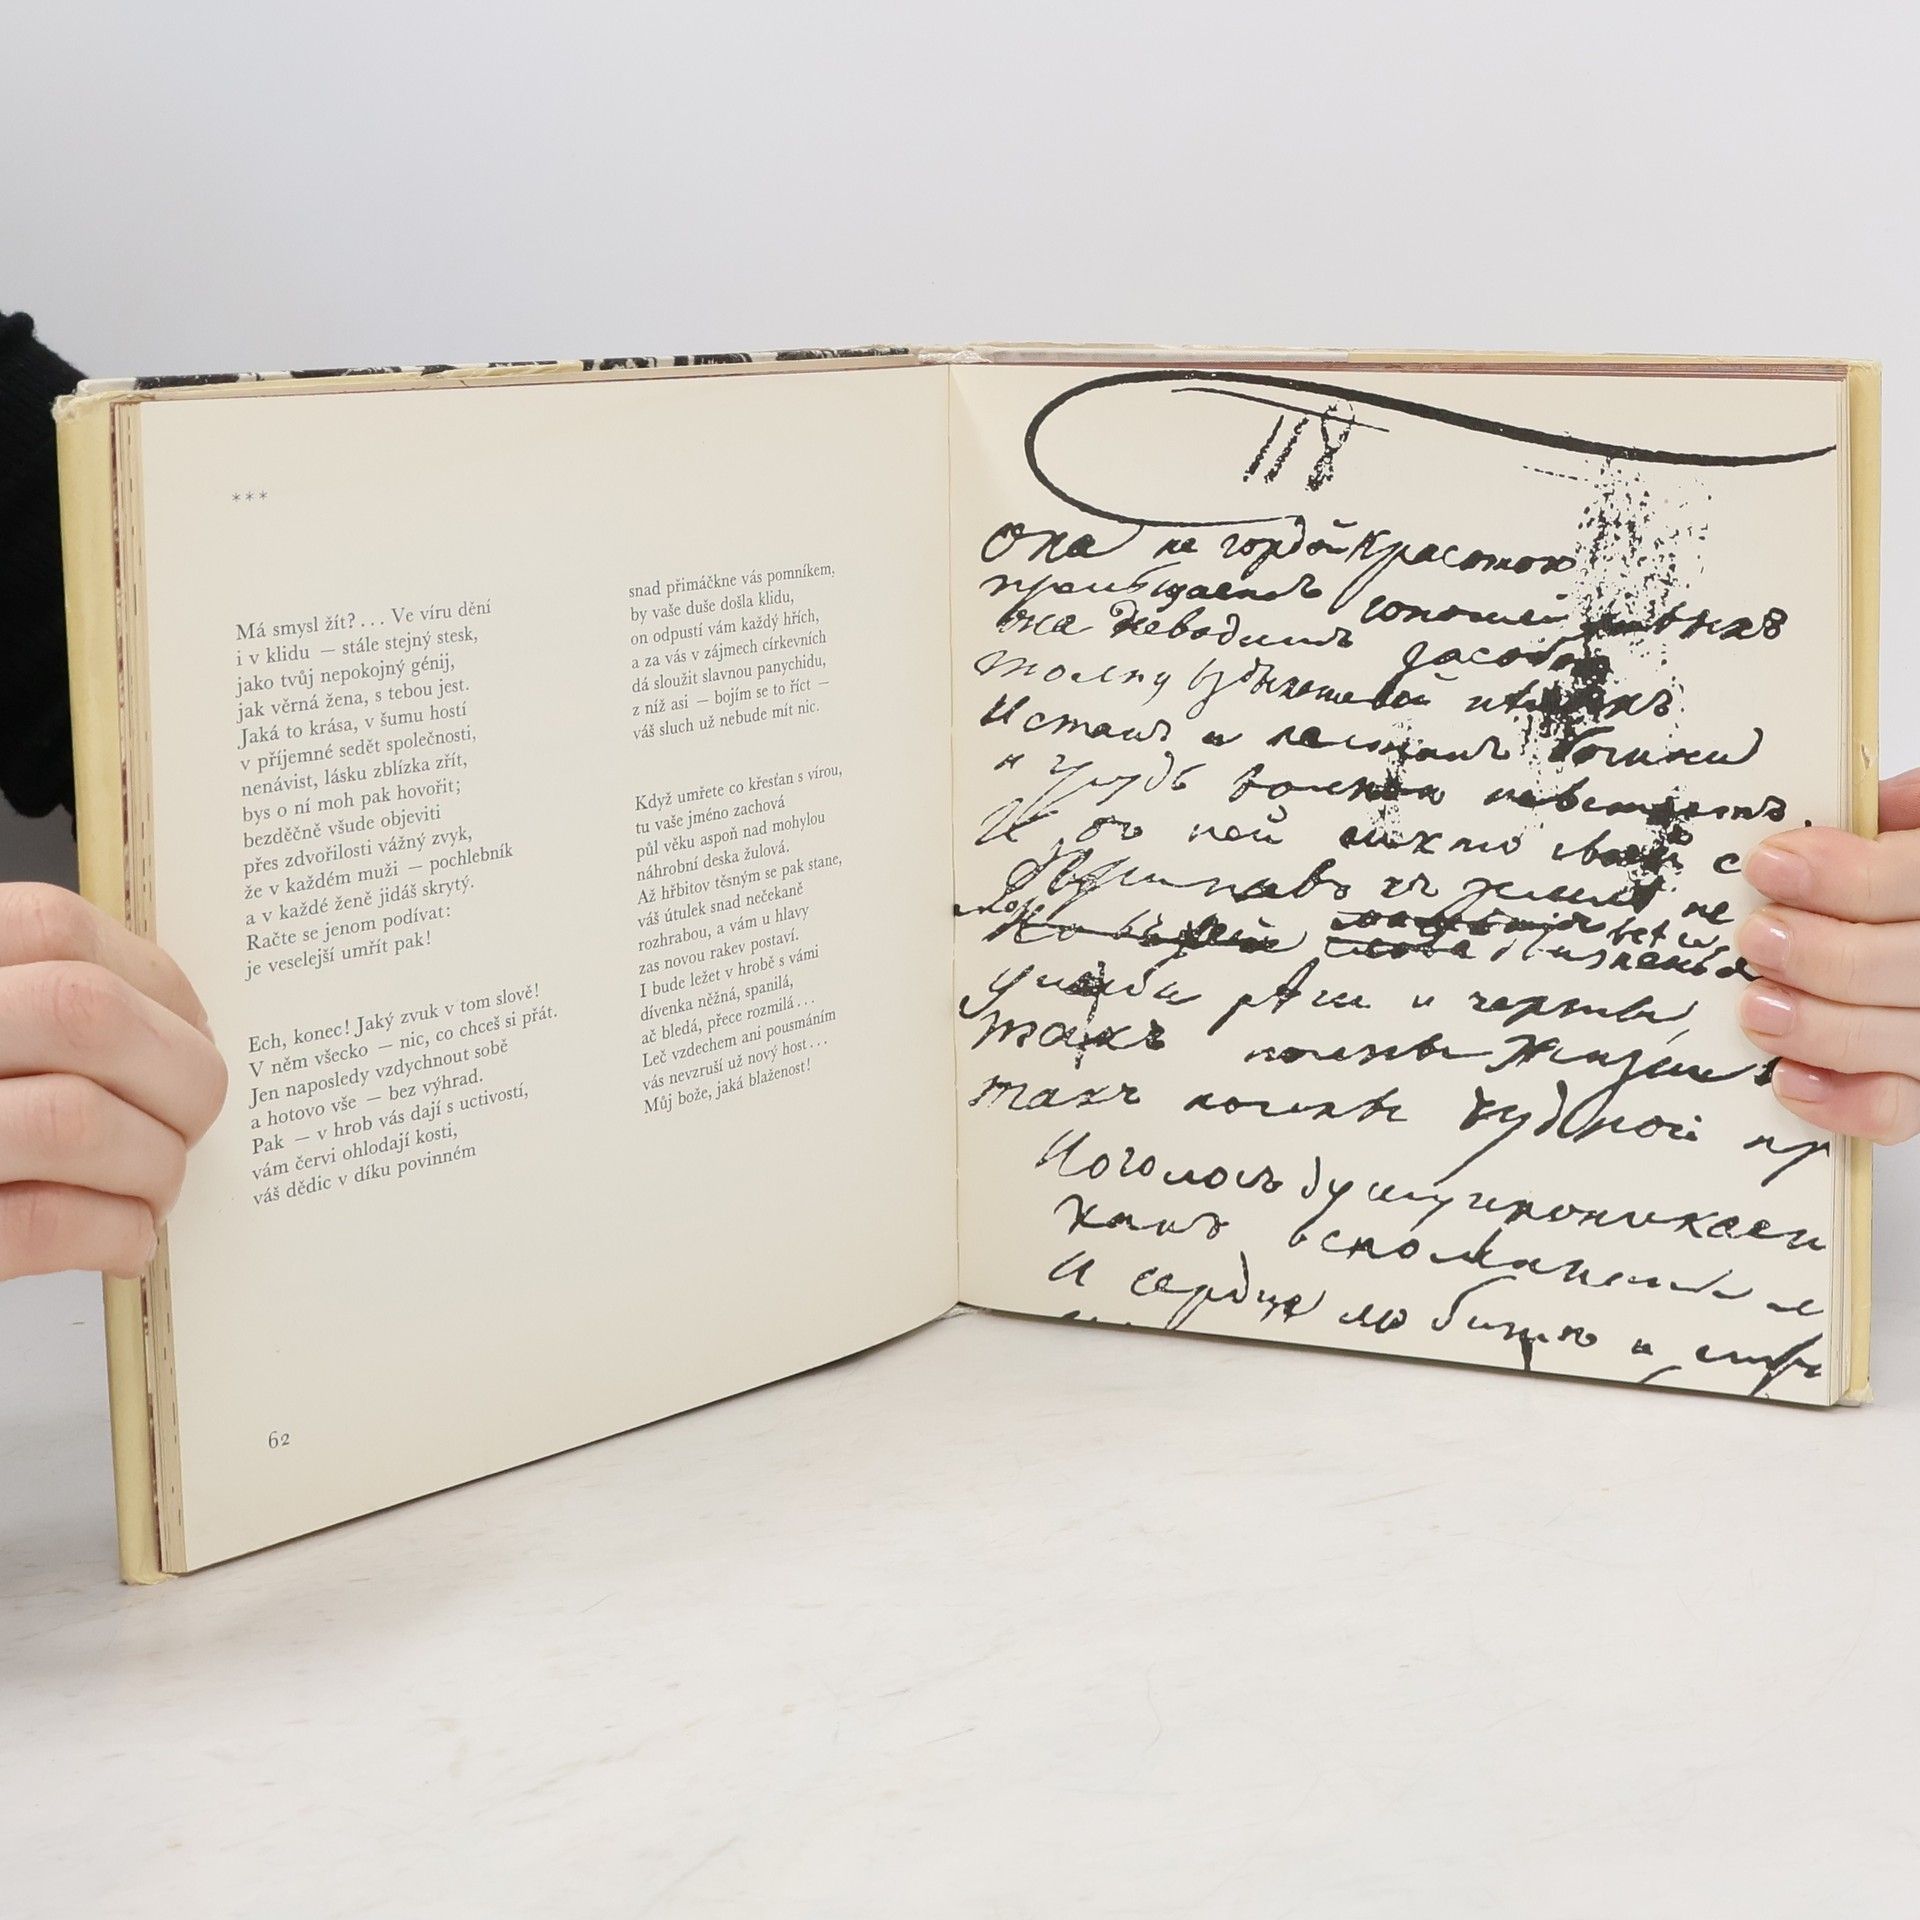 ***
Má smysl žít? ... Ve víru dění
i v klidu — stále stejný stesk,
jako tvůj nepokojný génij,
jak věrná žena, s tebou jest.
Jaká to krása, v šumu hostí
v příjemné sedět společnosti,
nenávist, lásku zblízka zřít,
bys o ní moh pak hovořit;
bezděčně všude objeviti
přes zdvořilosti vážný zvyk,
že v každém muži — pochlebník
a v každé ženě jidáš skrytý.
Račte se jenom podívat:
je veselejší umřít pak!
Ech, konec! Jaký zvuk v tom slově!
V něm všecko — nic, co chceš si přát.
Jen naposledy vzdychnout sobě
a hotovo vše — bez výhrad.
Pak — v hrob vás dají s uctivostí,
vám červi ohlodají kosti,
váš dědic v díku povinném
snad přimáčkne vás pomníkem,
by vaše duše došla klidu,
on odpustí vám každý hřích,
a za vás v zájmech církevních
dá sloužit slavnou panychidu,
z níž asi — bojím se to říct —
váš sluch už nebude mít nic.
Když umřete co křesťan s vírou,
tu vaše jméno zachová
půl věku aspoň nad mohylou
náhrobní deska žulová.
Až hřbitov těsným se pak stane,
váš útulek snad nečekaně
rozhrabou, a vám u hlavy
zas novou rakev postaví.
I bude ležet v hrobě s vámi
dívenka něžná, spanilá,
ač bledá, přece rozmilá...
Leč vzdechem ani pousmáním
vás nevzruší už nový host...
Můj bože, jaká blaženost!
62
она не гордой красотою
прельщаетъ юношей
она неводитъ засобою
толпу вздыхателей
И станъ и
и грудь волною
И въ ней никто
земле не
такъ полны жизни
такъ полны чудной пр
И сердце любитъ и